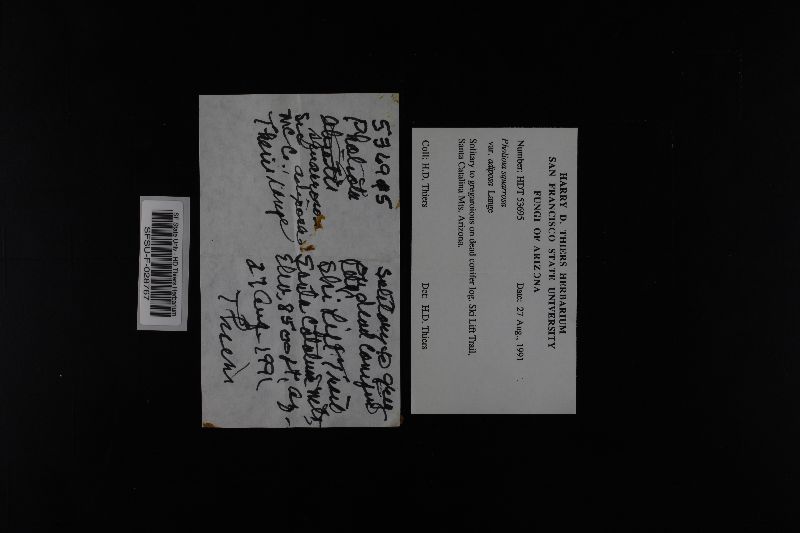 HARRY D. THIERS HERBARIUM
SAN FRANCISCO STATE UNIVERSITY
FUNGI OF ARIZONA
Number: HDT 53695 Date: 27 Aug., 1991
Pholiota squarrosa
var. adiposa Lange
Solitary to gregarious on dead conifer log, Ski Lift Trail,
Santa Catalina Mts. Arizona.
Coll: H.D. Thiers Det: H.D. Thiers
53695
Pholiota
Solitary to greg
dead conifer
Ski Lift Trail
Santa Catalina Mts,
Elev. 8500 ft, Az.
27 Aug 1991
Thiers
SF State Univ. HD Thiers Herbarium
SFSU-F-028767